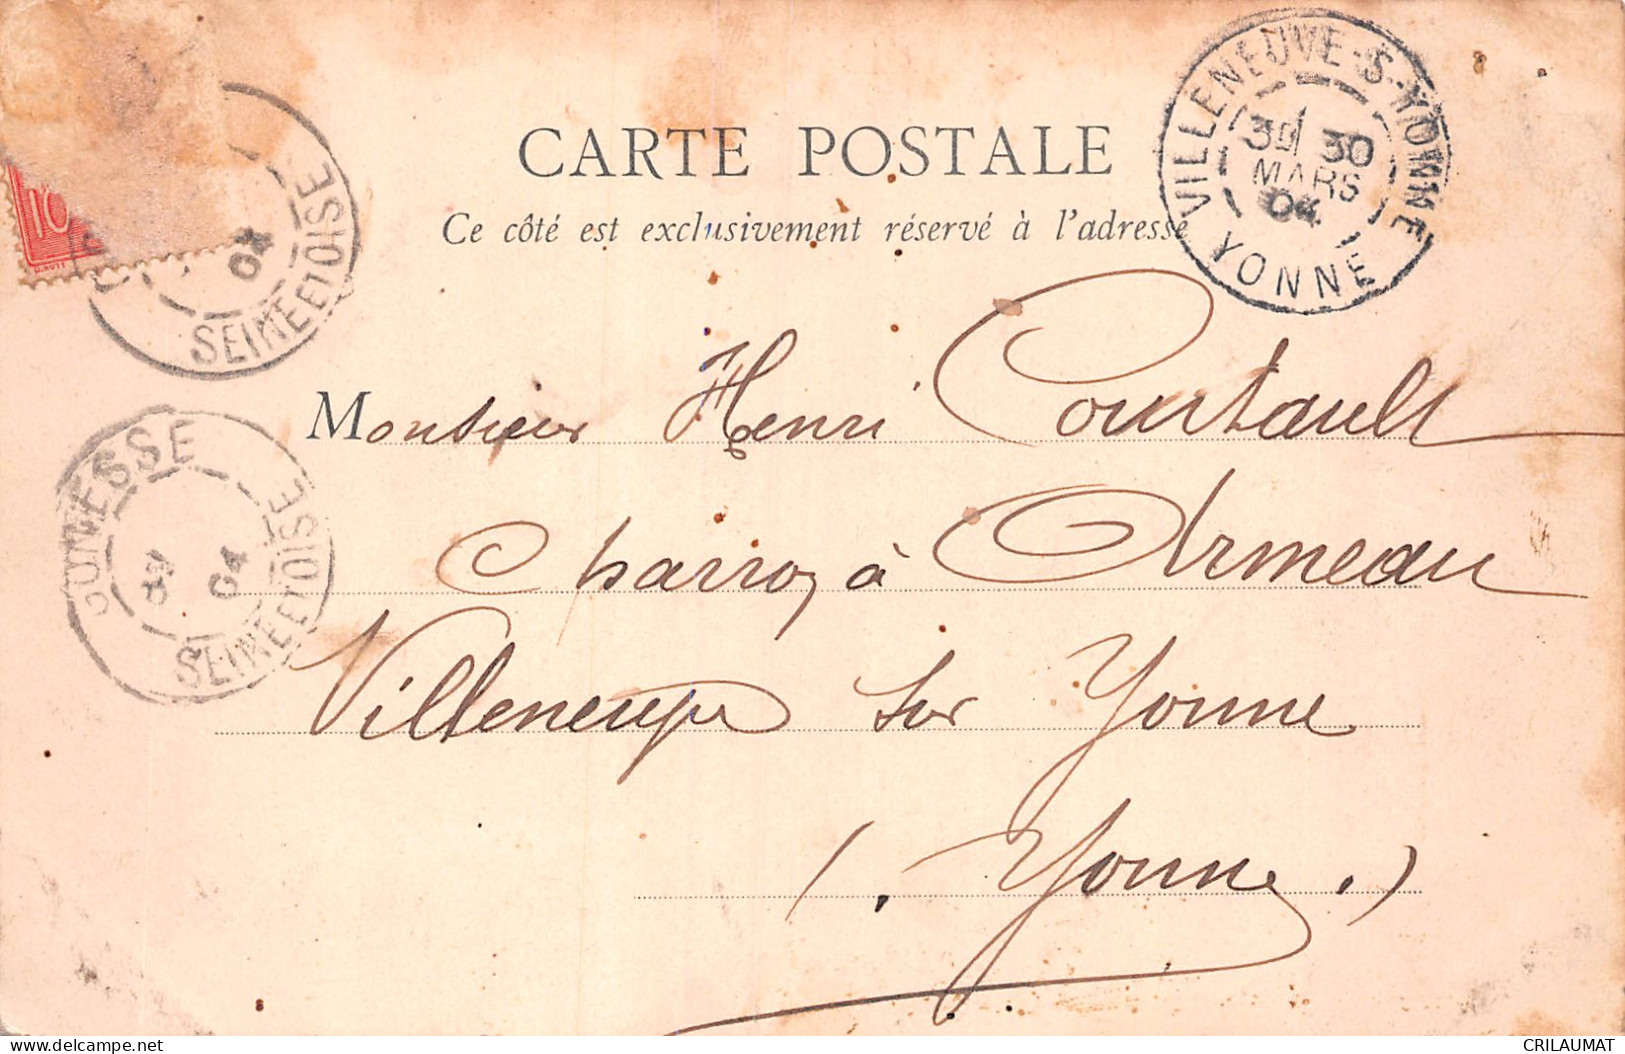 CARTE POSTALE
Ce côté est exclusivement réservé à l'adresse
VILLENEUVE-S-YONNE
30 MARS 04
YONNE
10
04
SEINE ET OISE
Monsieur Henri Courtault
Charroy à Armeau
04
SEINE ET OISE
Villeneuve sur Yonne
(Yonne.)
delcampe.net
CRILAUMAT